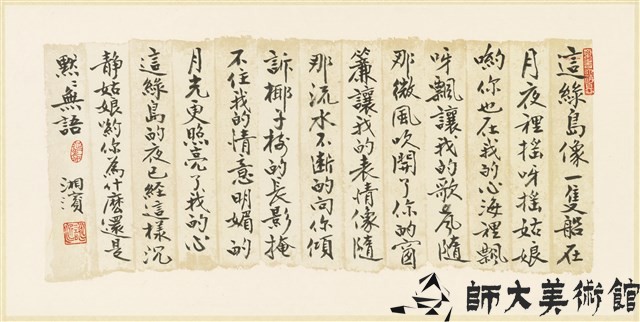 這綠島像一隻船在
月夜裡搖呀搖姑娘
喲你也在我的心海裡飄
呀飄讓我的歌聲隨
那微風吹開了你的窗
簾讓我的衷情像隨
那流水不斷的向你傾
訴椰子樹的長影掩
不住我的情意明媚的
月光更照亮了我的心
這綠島的夜已經這樣沉
靜姑娘喲你為什麼還是
默々無語
湘濱
師大美術館